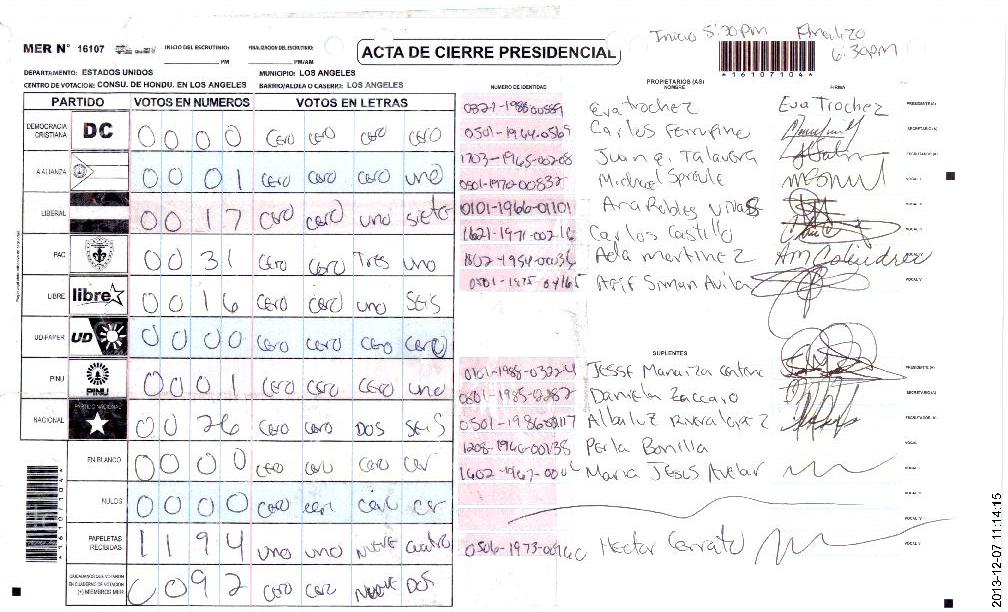 Inicio 5:30pm Finalizo
6:30pm
MER N° 16107
INICIO DEL ESCRUTINIO: FINALIZACION DEL ESCRUTINIO:
PM PM/AM
ACTA DE CIERRE PRESIDENCIAL
*16107104*
DEPARTAMENTO: ESTADOS UNIDOS MUNICIPIO: LOS ANGELES
CENTRO DE VOTACION: CONSU. DE HONDU. EN LOS ANGELES BARRIO/ALDEA O CASERIO: LOS ANGELES
PARTIDO VOTOS EN NUMEROS VOTOS EN LETRAS
DEMOCRACIA CRISTIANA DC 0 0 0 0 cero cero cero cero
ALIANZA 0 0 0 1 cero cero cero uno
LIBERAL 0 0 1 7 cero cero uno siete
PAC 0 0 3 1 cero cero Tres uno
LIBRE libre 0 0 1 6 cero cero uno Seis
UD-FAPER UD 0 0 0 0 cero cero cero cero
PINU PINU 0 0 0 1 cero cero cero uno
NACIONAL PARTIDO NACIONAL 0 0 26 cero cero DOS Seis
EN BLANCO 0 0 0 0 cero cero cero cer
NULOS 0 0 0 0 cero cer
PAPELETAS RECIBIDAS 1 1 9 4 uno uno Nueve cuatro
CIUDADANOS QUE VOTARON EN CUADERNO DE VOTACION (+) MIEMBROS MER 0 0 9 2 cero cero Nueve Dos
NUMERO DE IDENTIDAD PROPIETARIOS (AS) NOMBRE FIRMA
Eva Trochez Eva Trochez PRESIDENTE (A)
0501-1964-0569 Carlos SECRETARIO (A)
1703-1965-00208 Juan Talavera ESCRUTADOR (A)
0801-1970-00832 Michael Sproule VOCAL I
0101-1966-01101 Ana Robles Vivas VOCAL II
1621-1971-00216 Carlos Castillo VOCAL III
Ada Martinez VOCAL IV
VOCAL V
SUPLENTES
PRESIDENTE (A)
Daniela Zaccaro SECRETARIO (A)
ESCRUTADOR (A)
1208-1966-00138 Perla Bonilla VOCAL
Maria Jesus Avelar VOCAL
VOCAL
VOCAL IV
Hector Cerrato VOCAL V
*16107104*
2013-12-07 11:14:15